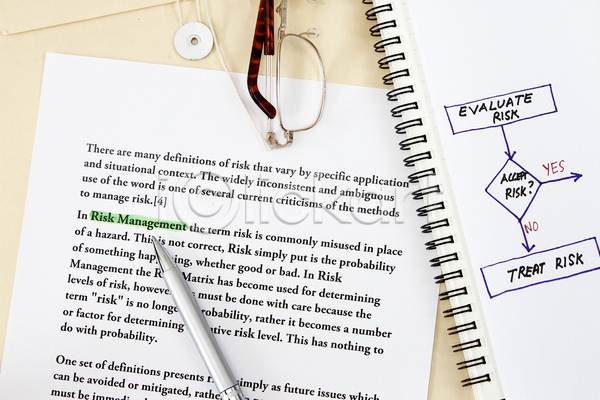 There are many definitions of risk that vary by specific application
and situational context. The widely inconsistent and ambiguous
use of the word is one of several current criticisms of the methods
to manage risk.[4]
In Risk Management the term risk is commonly misused in place
of a hazard. This is not correct, Risk simply put is the probability
of something happening, whether good or bad. In Risk
Management the Risk Matrix has become used for determining
levels of risk, however must be done with care because the
term "risk" is no longer probability, rather it becomes a number
or factor for determining relative risk level. This has nothing to
do with probability.
One set of definitions presents risk simply as future issues which
can be avoided or mitigated, rather
must be immediately
EVALUATE
RISK
ACCEPT
RISK?
YES
NO
TREAT RISK
iclickart